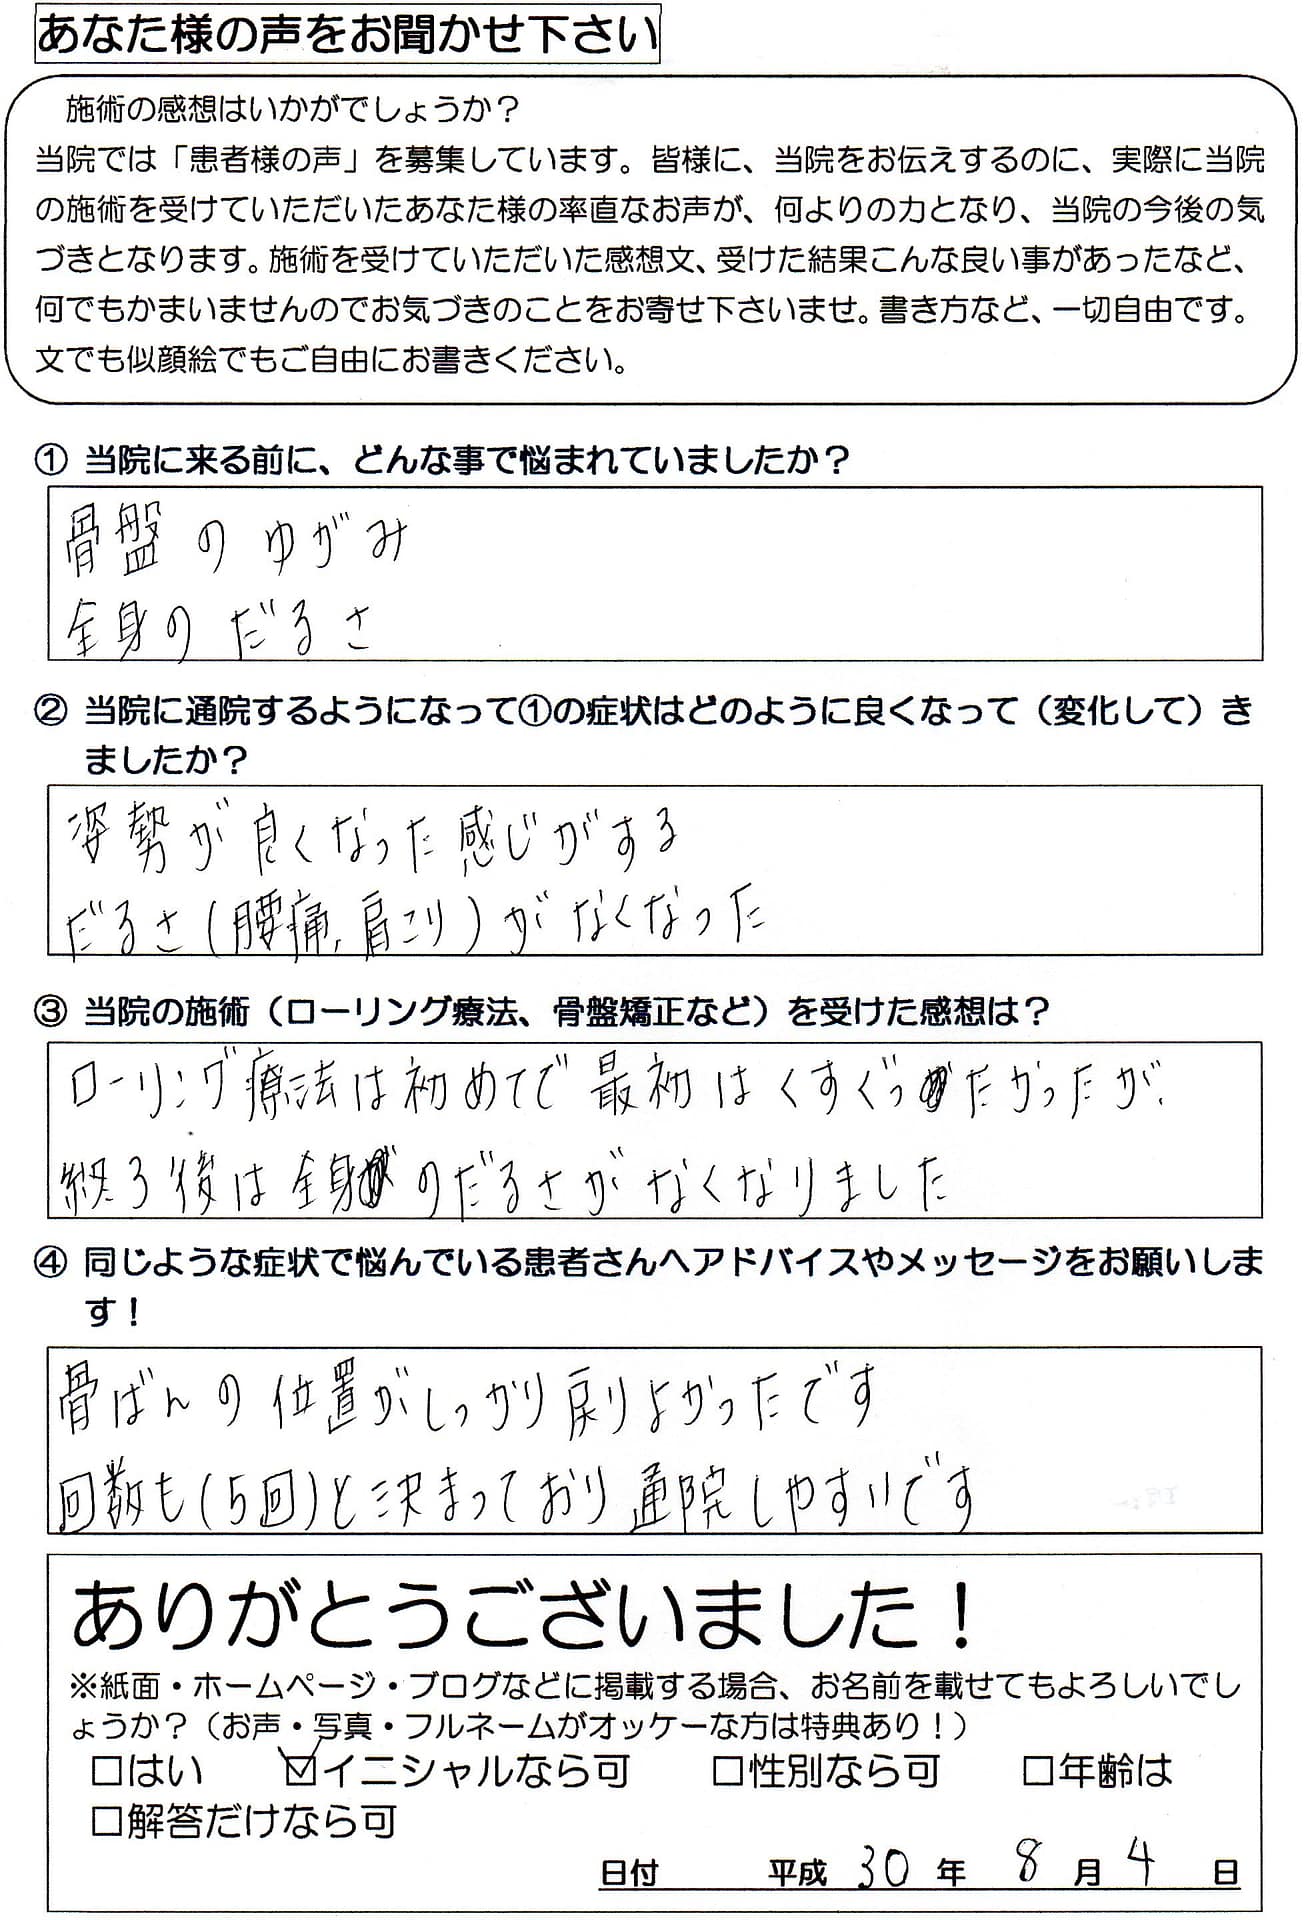 あなた様の声をお聞かせ下さい
施術の感想はいかがでしょうか?
当院では「患者様の声」を募集しています。皆様に、当院をお伝えするのに、実際に当院
の施術を受けていただいたあなた様の率直なお声が、何よりの力となり、当院の今後の気
づきとなります。施術を受けていただいた感想文、受けた結果こんな良い事があったなど、
何でもかまいませんのでお気づきのことをお寄せ下さいませ。書き方など、一切自由です。
文でも似顔絵でもご自由にお書きください。
① 当院に来る前に、どんな事で悩まれていましたか?
骨盤のゆがみ
全身のだるさ
② 当院に通院するようになって①の症状はどのように良くなって(変化して)き
ましたか?
姿勢が良くなった感じがする
だるさ(腰痛、肩こり)がなくなった
③ 当院の施術(ローリング療法、骨盤矯正など)を受けた感想は?
ローリング療法は初めてで最初はくすぐったかったが、
終了後は全身のだるさがなくなりました
④ 同じような症状で悩んでいる患者さんへアドバイスやメッセージをお願いしま
す!
骨ばんの位置がしっかり戻りよかったです
回数も(5回)と決まっており通院しやすいです
ありがとうございました!
※紙面・ホームページ・ブログなどに掲載する場合、お名前を載せてもよろしいでし
ょうか?(お声・写真・フルネームがオッケーな方は特典あり!)
□はい ☑イニシャルなら可 □性別なら可 □年齢は
□解答だけなら可
日付 平成 30 年 8 月 4 日